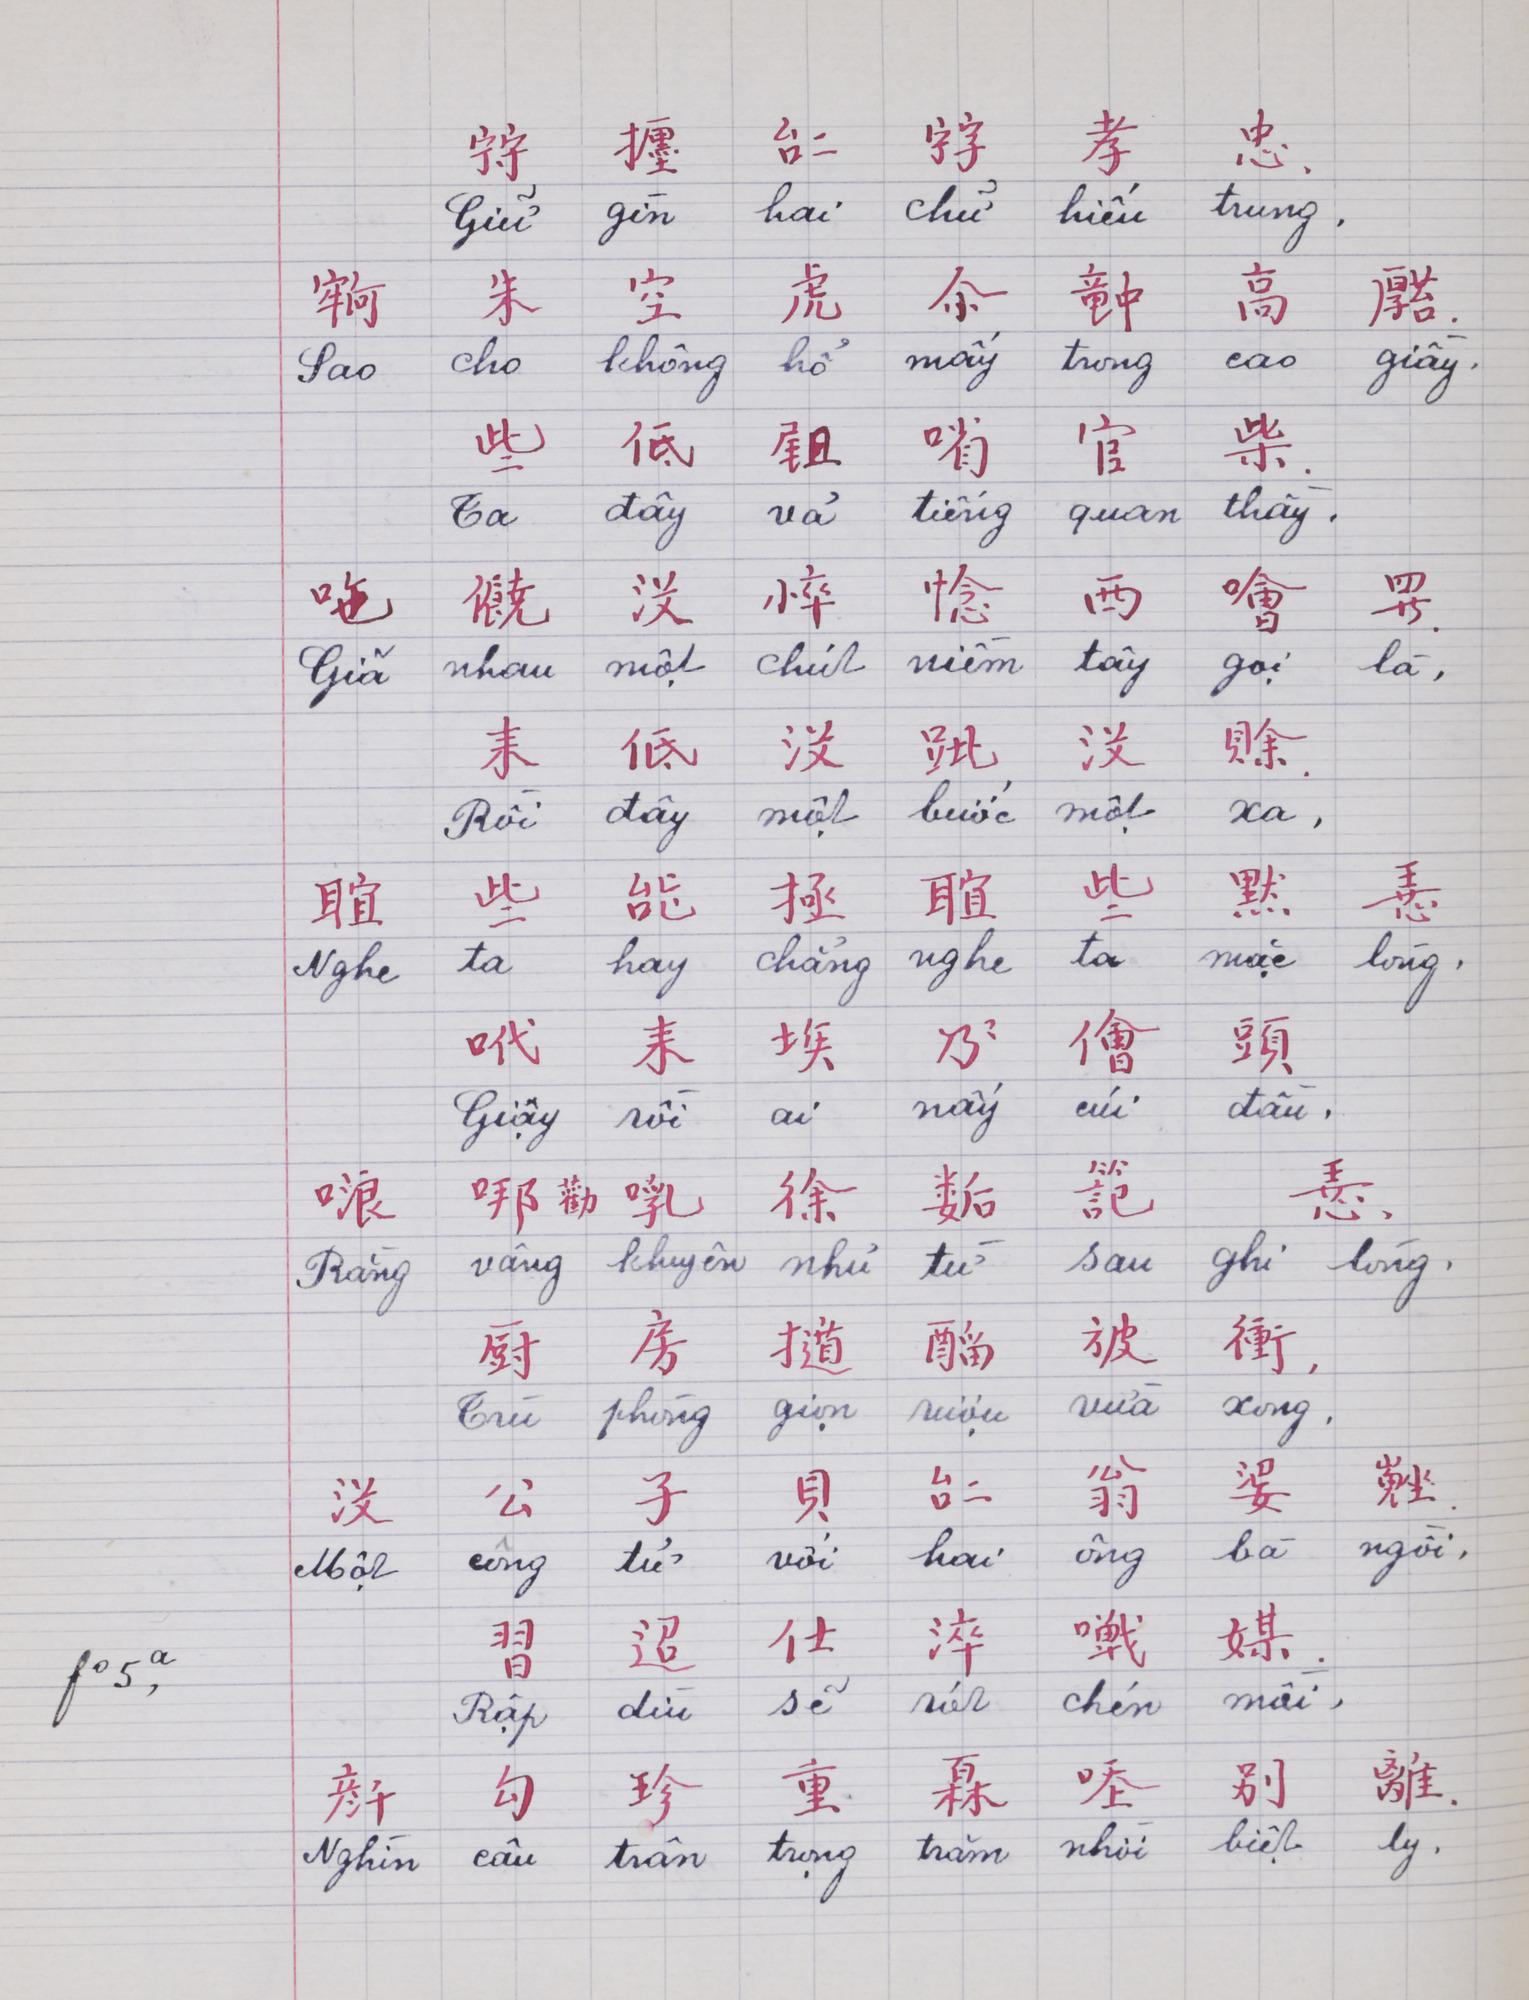 𡨺 㨙 𠄩 𡨸 孝 忠.
Giữ gìn hai chữ hiếu trung.
朱 空 虎 余 𥪞 高 𠫅.
Sao cho không hổ mấy trong cao giầy.
些 低 𡲈 㗂 官 柴.
Ta đây vả tiếng quan thầy.
吔 饒 没 悴 惗 西 噲 罪.
Giã nhau một chút niềm tây gọi là.
耒 低 没 𨀈 没 賒.
Rồi đây một bước một xa.
𦖑 些 咍 拯 𦖑 些 默 𢚸
Nghe ta hay chẳng nghe ta mặc lòng.
𠯇 耒 埃 乃 儈 頭
Giậy rồi ai nấy cúi đầu.
㖫 㖡 勸 𠽌 徐 𡢐 𥱬 𢚸.
Rằng vâng khuyên nhủ từ sau ghi lòng.
厨 房 𢵧 𨢇 𣃣 衝.
Trù phòng giọn rượu vừa xong.
没 公 子 貝 𠄩 翁 婆 𡾵.
Một công tử với hai ông bà ngồi.
習 迢 仕 淬 𡃹 媒.
Rập dìu sẽ rót chén mồi.
fº 5, a
𠦳 勾 珍 重 𤾓 𠱀 别 離.
Nghìn câu trân trọng trăm nhời biệt ly.